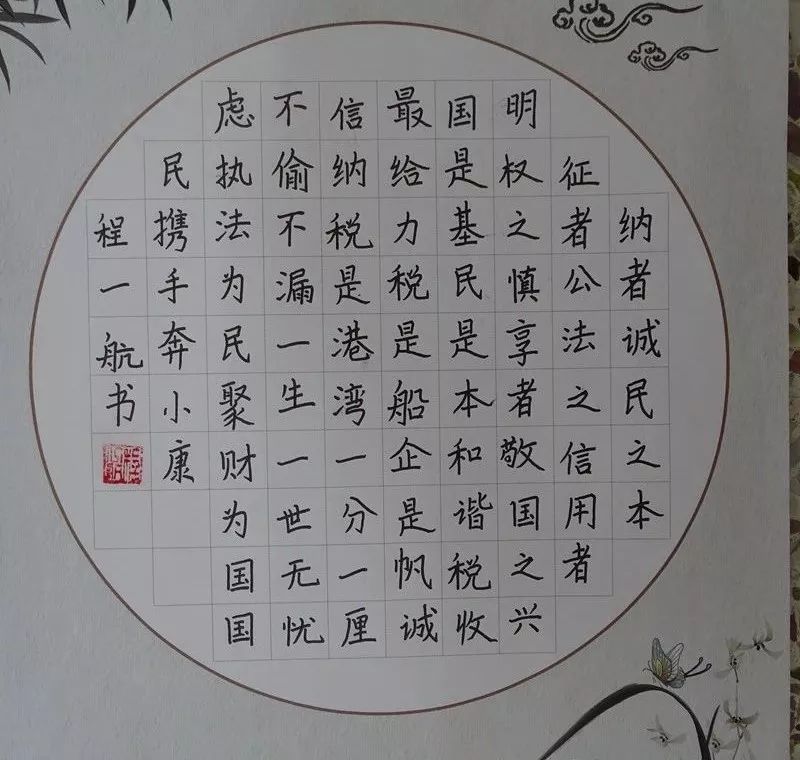 纳者诚民之本
征者公法之信用者
明权之慎享者敬国之兴
国是基民是本和谐税收
最给力税是船企是帆诚
信纳税是港湾一分一厘
不偷不漏一生一世无忧
虑执法为民聚财为国国
民携手奔小康
程一航书